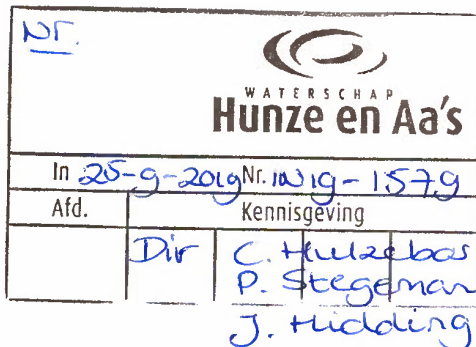 Nr.
WATERSCHAP
Hunze en Aa's
In 25-9-2019 Nr. IN19-1579
Afd. Kennisgeving
Dir C. Hulzebos
P. Stegeman
J. Hidding